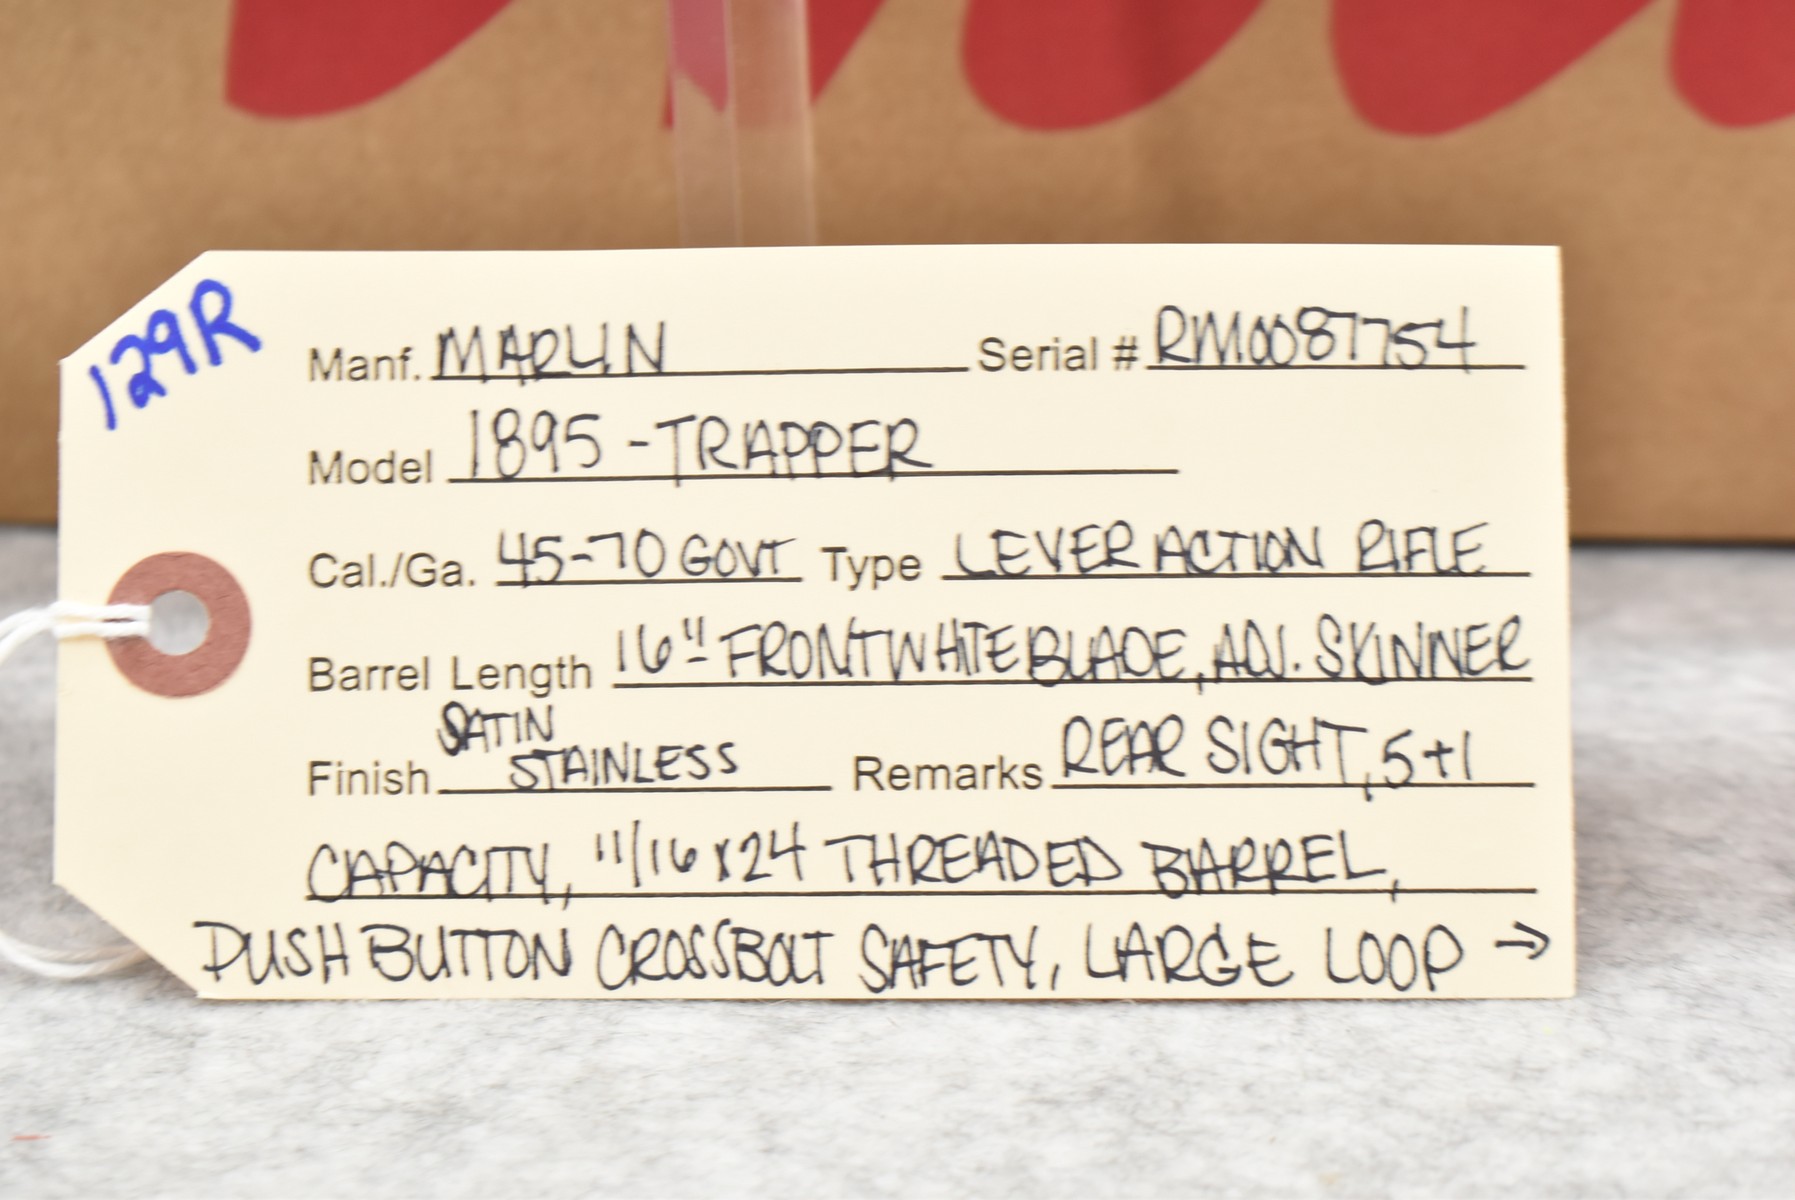 129R
Manf. MARLIN Serial # RM0087754
Model 1895-TRAPPER
Cal./Ga. 45-70 GOVT Type LEVER ACTION RIFLE
Barrel Length 16" FRONT WHITE BLADE, ADJ. SKINNER
Finish SATIN STAINLESS Remarks REAR SIGHT, 5+1
CAPACITY, 11/16x24 THREADED BARREL,
PUSH BUTTON CROSSBOLT SAFETY, LARGE LOOP →